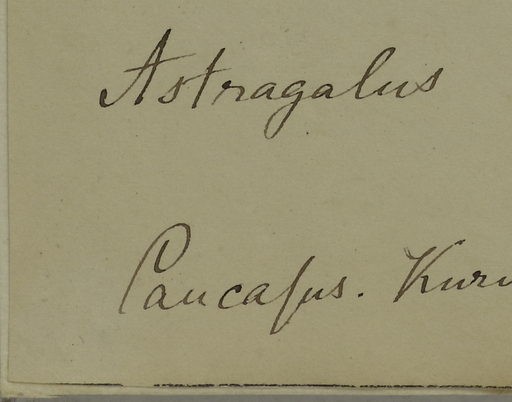 Astragalus
Caucaſus.